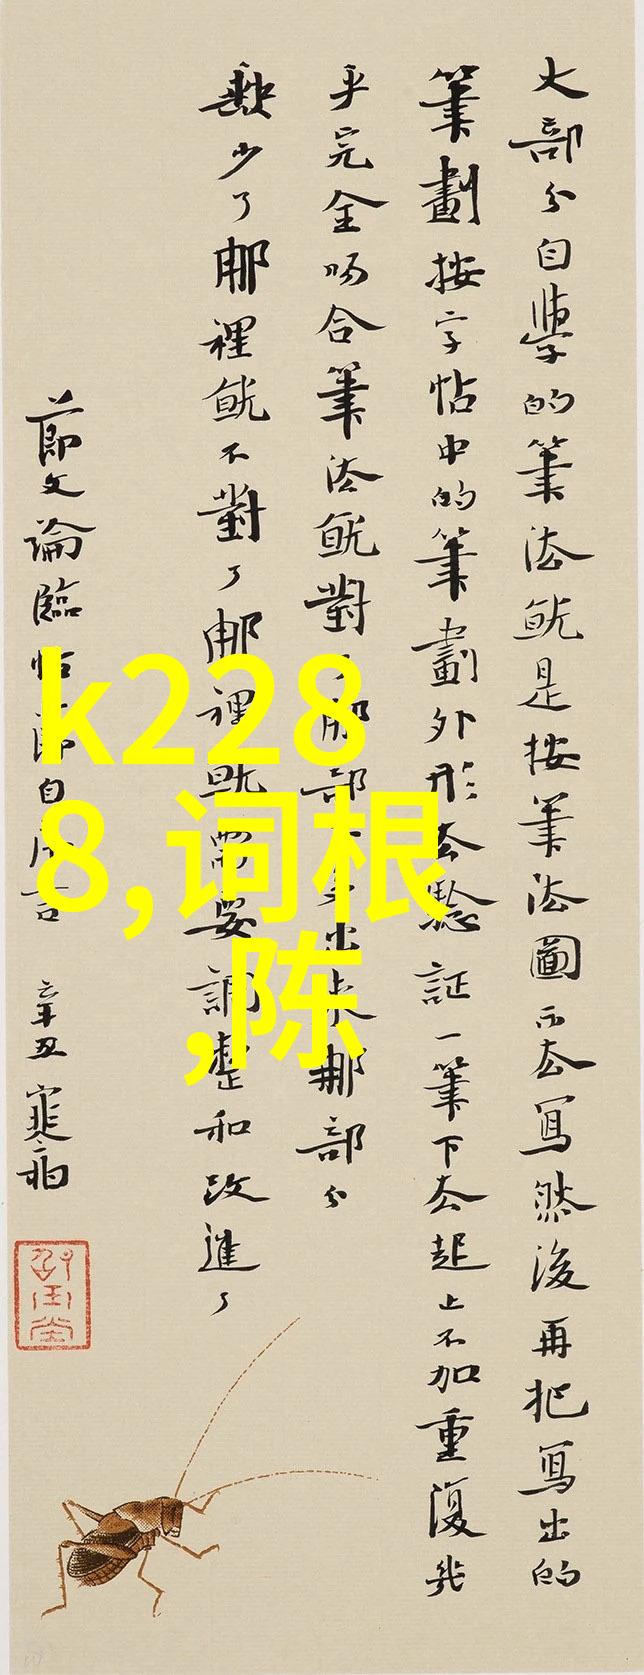 大部分自學的筆法就是按筆法圖示去寫然後再把寫出的
筆劃按字帖中的筆劃外形去驗証一筆下去起上不加重復幾
乎完全吻合筆法就對了那部出來那部分
缺少了那裡就不對了那裡就需要調整和改進了
節文論臨帖節自序言 辛丑
k228
8,词根
,陈